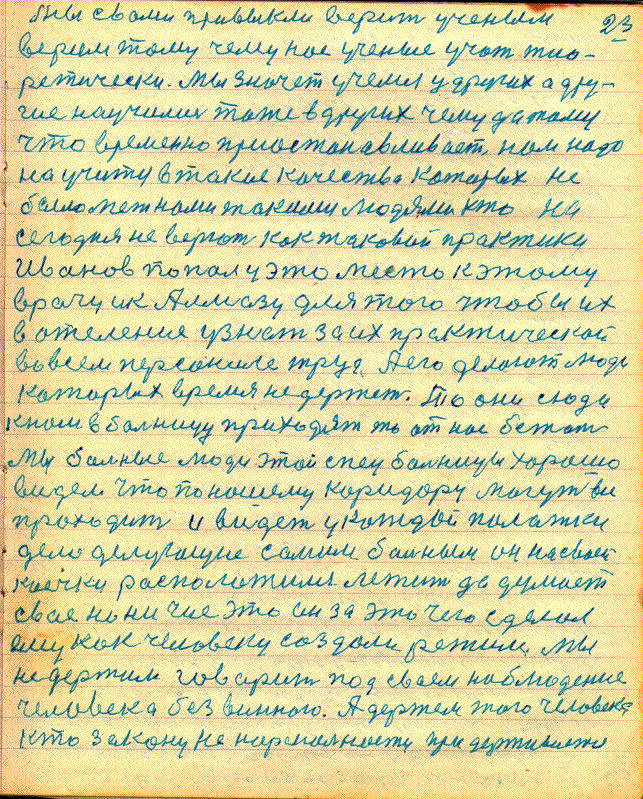 23
Мы свами привыкли верит ученым
верим тому чему нас ученые учат тио-
ретически. Мы значет учемся у других а дру-
гие научились тоже в других чему да тому
что временно приостанавливает нам надо
научится в такие качества которых не
было меж нами такими людями кто на
сегодня не верют как таковой практики
Иванов попал у это место к этому
врачу ик Алмазу для того чтобы их
в отеление узнат за их практической
во всем персонале труд. А его делают люди
которых время не держет. То они сюда
к нам в болницу приходят то от нас бежат
Мы болные люди этой спец болницы хорошо
видем что по нашему коридору могут вы
проходит и видет у каждой палатки
дело делующие самим болным он на своей
коечки расположился лежит да думает
свое но ни чие это он за это чего сделал
ему как человеку создали режим. Мы
не держим говорит под своем наблюдение
человека без винного. А держем того человека
кто закону не нарсналности придерживается